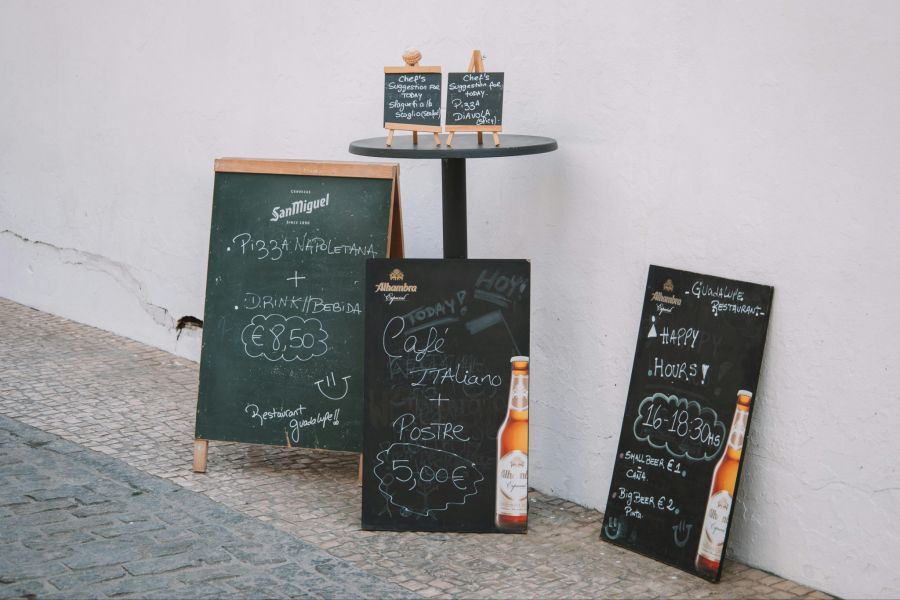 Chef's
Suggestion for
TODAY
Spagueti a lo
Scoglio (seafood)
Chef's
Suggestion for
TODAY.
Pizza
DiAvola
(spicy).
CERVEZAS
San Miguel
SINCE 1890
• Pizza Napoletana
+
• Drink // Bebida
€8,50
Restaurant
Guadalupe!!
Alhambra
Especial
TODAY! HOY!
Café
ITAliano
+
Postre
5,00€
Alhambra
Especial
Alhambra
Especial
- Guadalupe
Restaurant -
HAPPY
HOURS!
16-18:30HS
• Small Beer €1.
CAÑA.
• Big Beer €2.
Pinta.